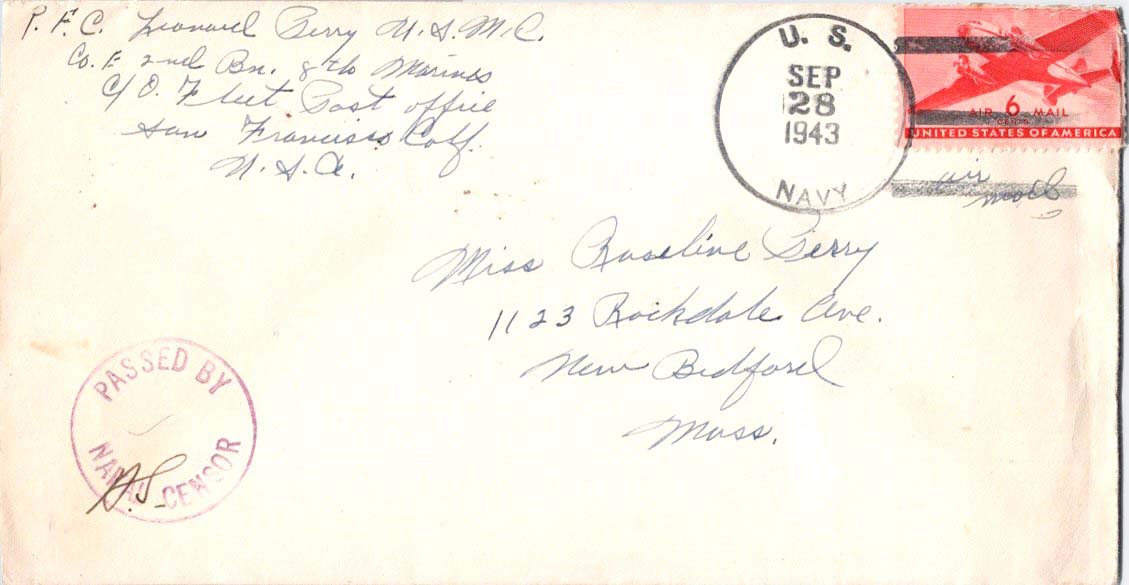 P.F.C. Leonard Perry U.S.M.C.
Co. E 2nd Bn. 8th Marines
C/O. Fleet Post office
San Francisco Calf.
U.S.A.
U. S.
SEP
28
1943
NAVY
AIR 6 MAIL
CENTS
UNITED STATES OF AMERICA
air
mail
Miss Roseline Perry
1123 Rockdale Ave.
New Bedford
Mass.
PASSED BY
NAVAL CENSOR